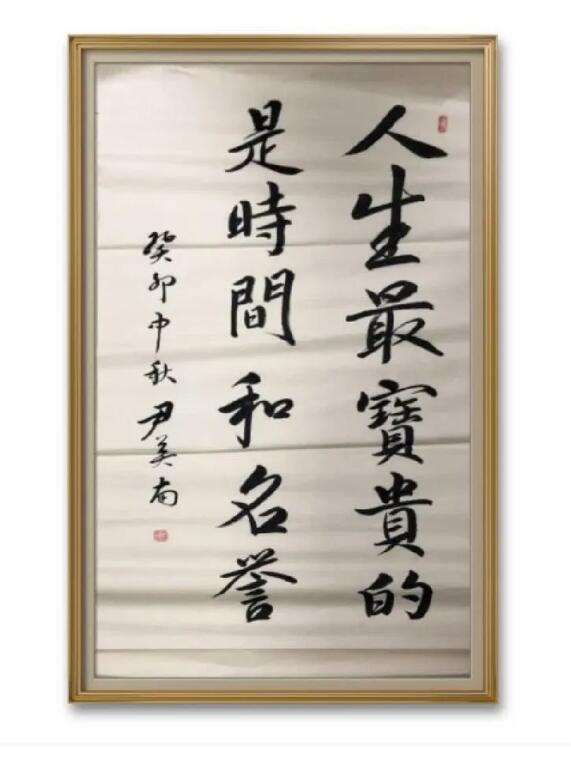 人生最寶貴的
是時間和名譽
癸卯中秋尹美南